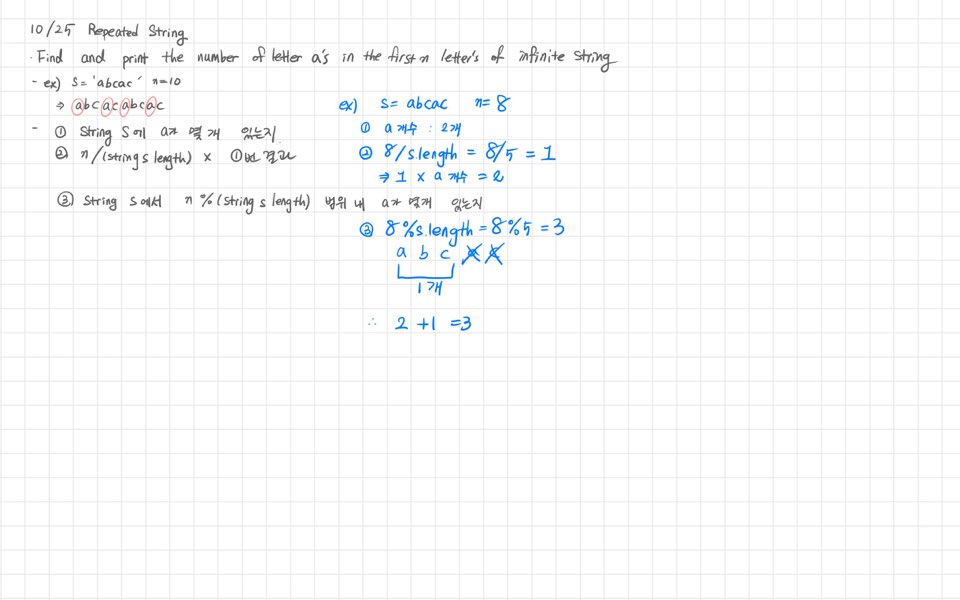 10/25 Repeated String
· Find and print the number of letter a's in the first n letter's of infinite string
- ex) S = 'abcac' n=10
⇒ abcacabcac
- ① String S에 a가 몇 개 있는지
② n/(string s length) × ①번 결과
③ String S에서 n%(string s length) 범위 내 a가 몇개 있는지
ex) S= abcac n= 8
① a개수 : 2개
② 8/s.length = 8/5 = 1
⇒ 1 × a개수 = 2
③ 8%s.length = 8%5 = 3
a b c a c
1개
∴ 2 +1 =3